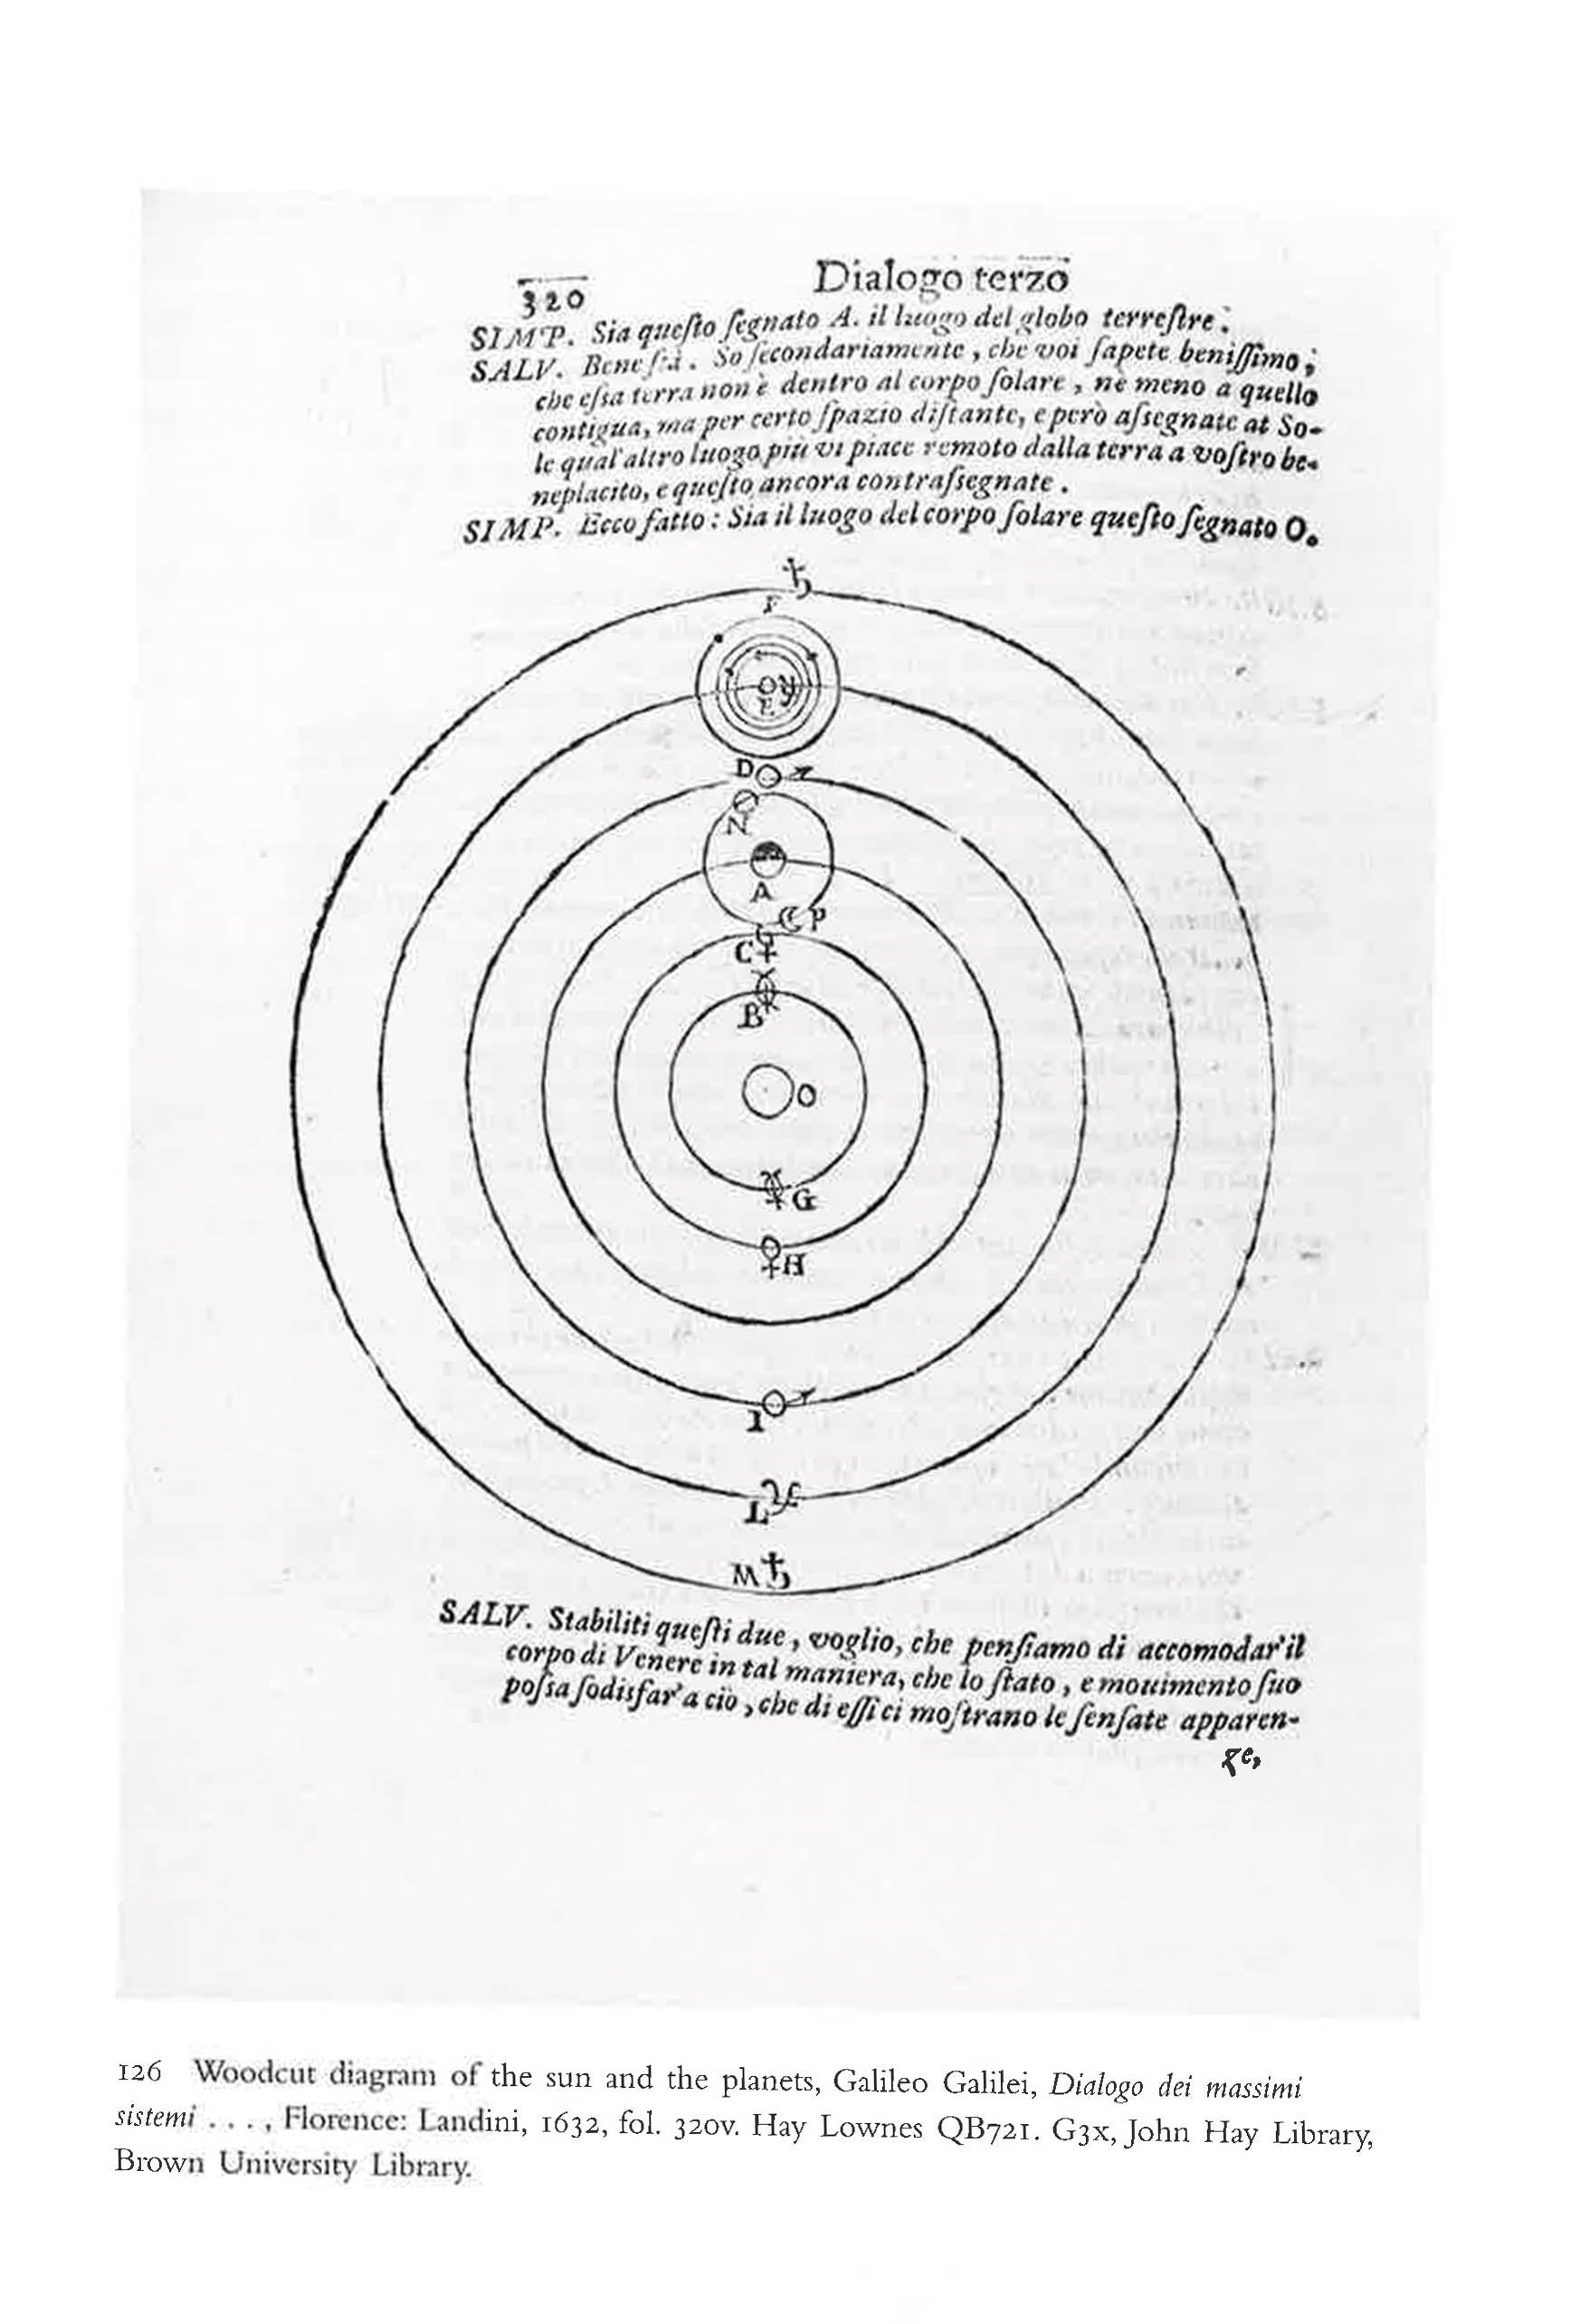 320
Dialogo terzo
SIMP. Sia queſto ſegnato A. il luogo del globo terreſtre.
SALV. Bene ſtà. So ſecondariamente, che voi ſapete beniſſimo;
che eſsa terra non è dentro al corpo ſolare, nè meno a quello
contigua, ma per certo ſpazio diſtante, e però aſsegnate at So-
le qual'altro luogo più vi piace remoto dalla terra a voſtro be-
neplacito, e queſto ancora contraſsegnate.
SIMP. Ecco fatto: Sia il luogo del corpo ſolare queſto ſegnato O.
♄
F
E
D ♂
N
A
☾ P
C ♀
☿
B
O
☿ G
♀ H
I ♂
L ♃
M ♄
SALV. Stabiliti queſti due, voglio, che penſiamo di accomodar'il
corpo di Venere in tal maniera, che lo ſtato, e mouimento ſuo
poſsa ſodisfar'a ciò, che di eſſi ci moſtrano le ſenſate apparen-
ze,
126 Woodcut diagram of the sun and the planets, Galileo Galilei, Dialogo dei massimi
sistemi . . . , Florence: Landini, 1632, fol. 320v. Hay Lownes QB721. G3x, John Hay Library,
Brown University Library.